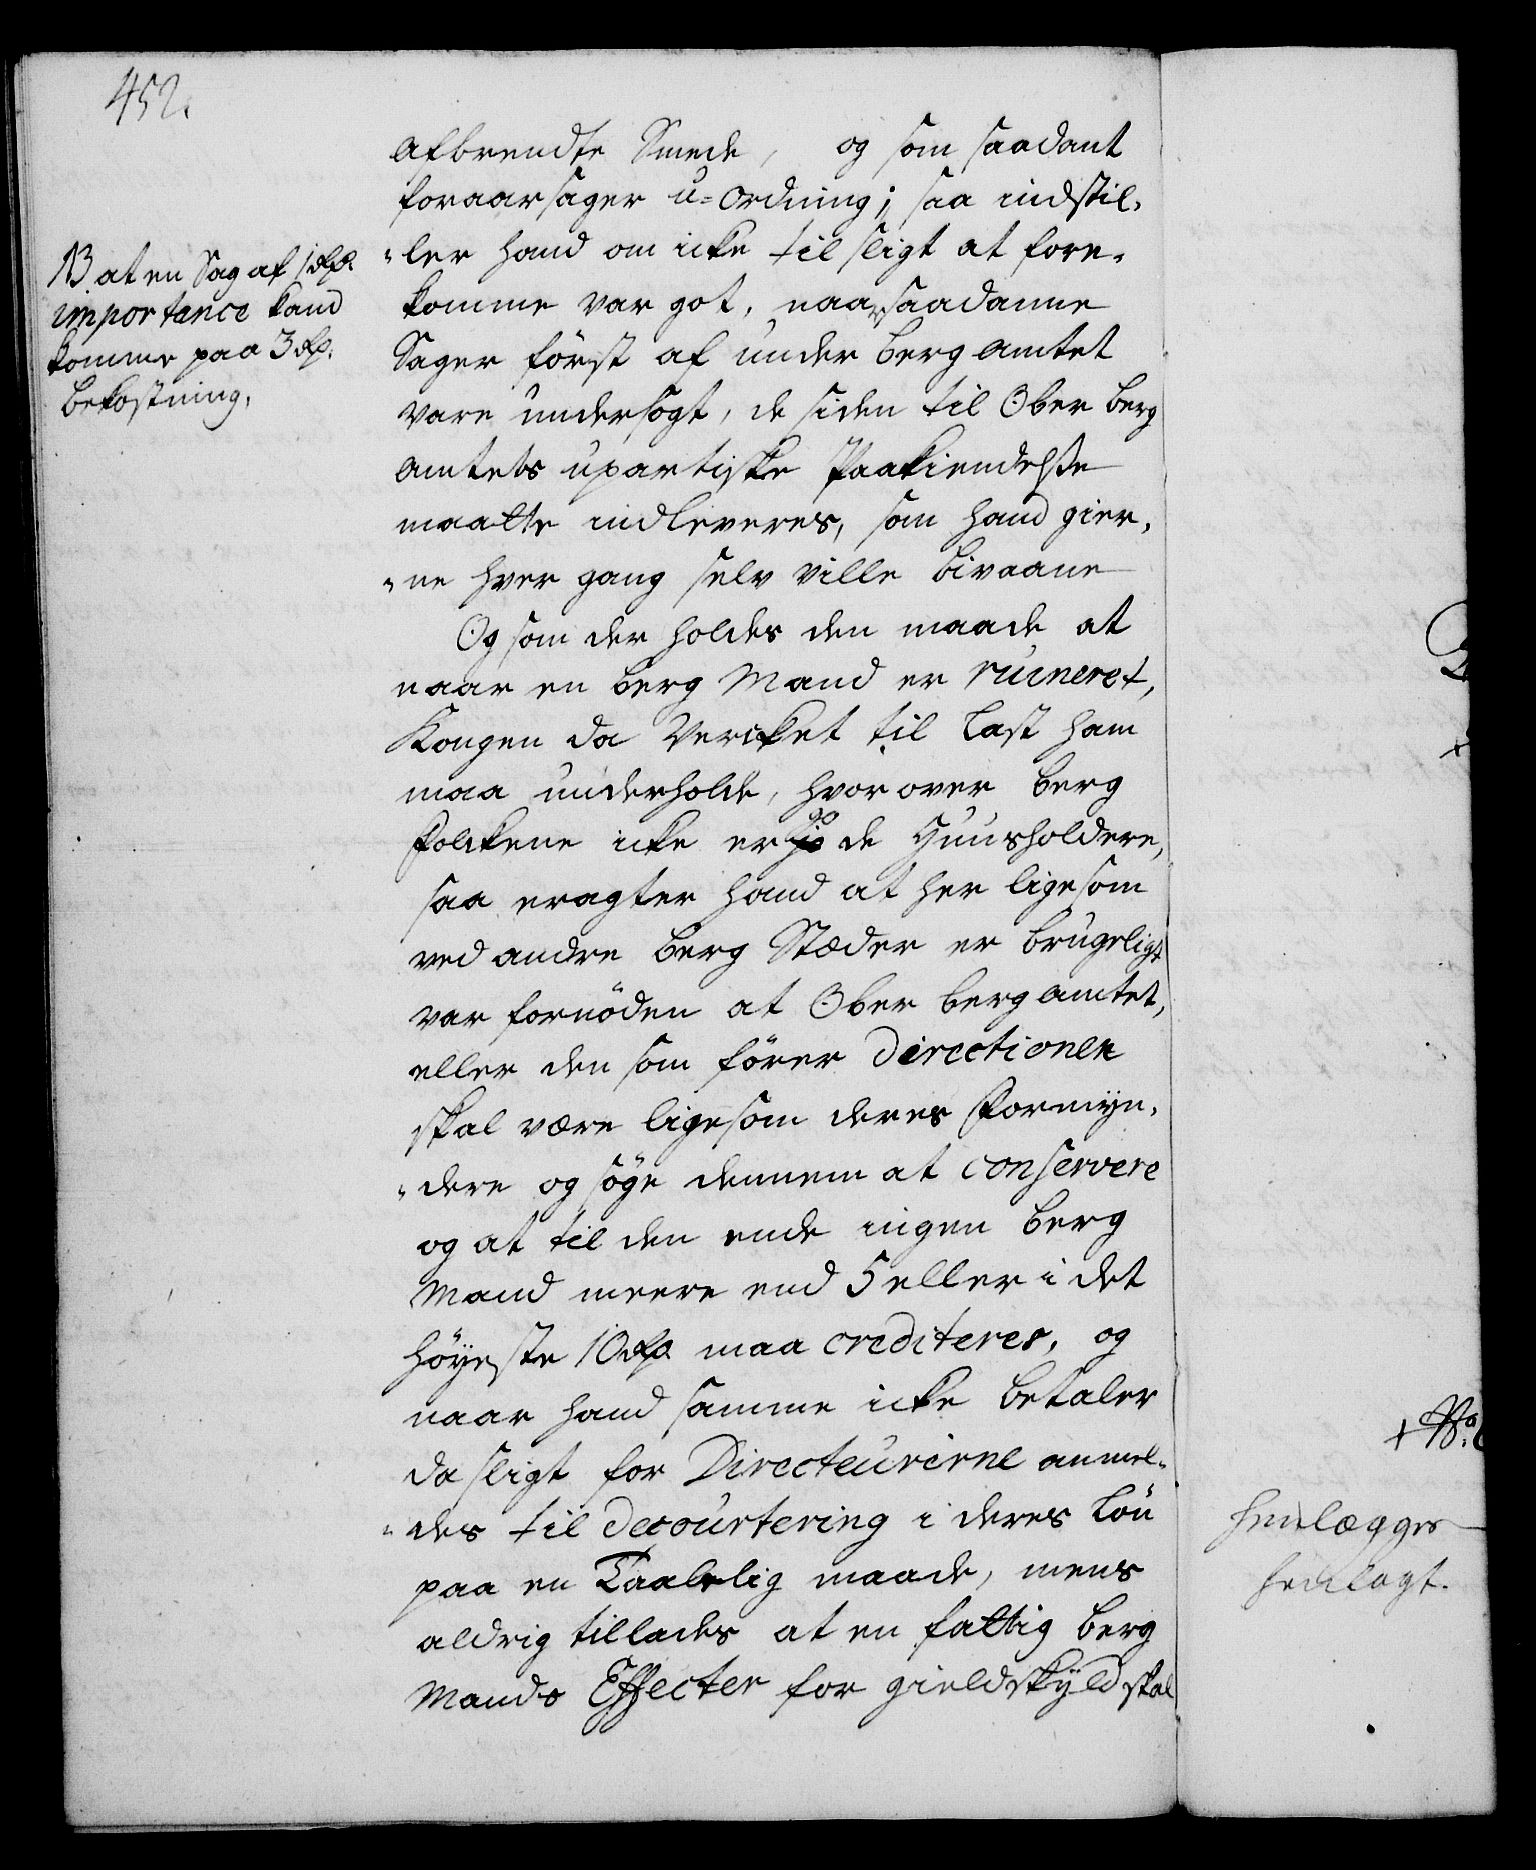 452.
afbrendte Smede, og som saadant
foraarsager u=ordning; saa indstil,
"ler hand om icke til sligt at fore,
komme var got, naar saadanne
Sager först af under berg amtet
vare undersögt, de siden til Ober berg
amtets upartiske Paakiendelse
maatte indleveres, som hand gier,
"ne hver gang selv ville bivaane
NB at en Sag af 1 Rdr.
importance kand
komme paa 3 Rdr.
bekostning.
Og som der holdes den maade at
naar en berg Mand er ruineret,
Kongen da Vercket til Last ham
maa underholde, hvorover berg
folckene icke er so de Huusholdere,
saa eragter hand at her ligesom
ved andre berg Stæder er brugeligt
var fornöden at Ober berg amtet,
eller den som förer Directionen
skal være ligesom deres Formyn,
"dere og söge dennem at conservere
og at til den ende ingen berg
Mand meere end 5 eller i det
höyeste 10 Rdr. maa crediteres, og
naar hand samme icke betaler
da sligt for Directeurerne anmel"
"des til decourtering i deres Lön
paa en Taalelig maade, mens
aldrig tillades at en fattig berg
Mands Effecter for gieldskyld skal
henlægges
henlagt.